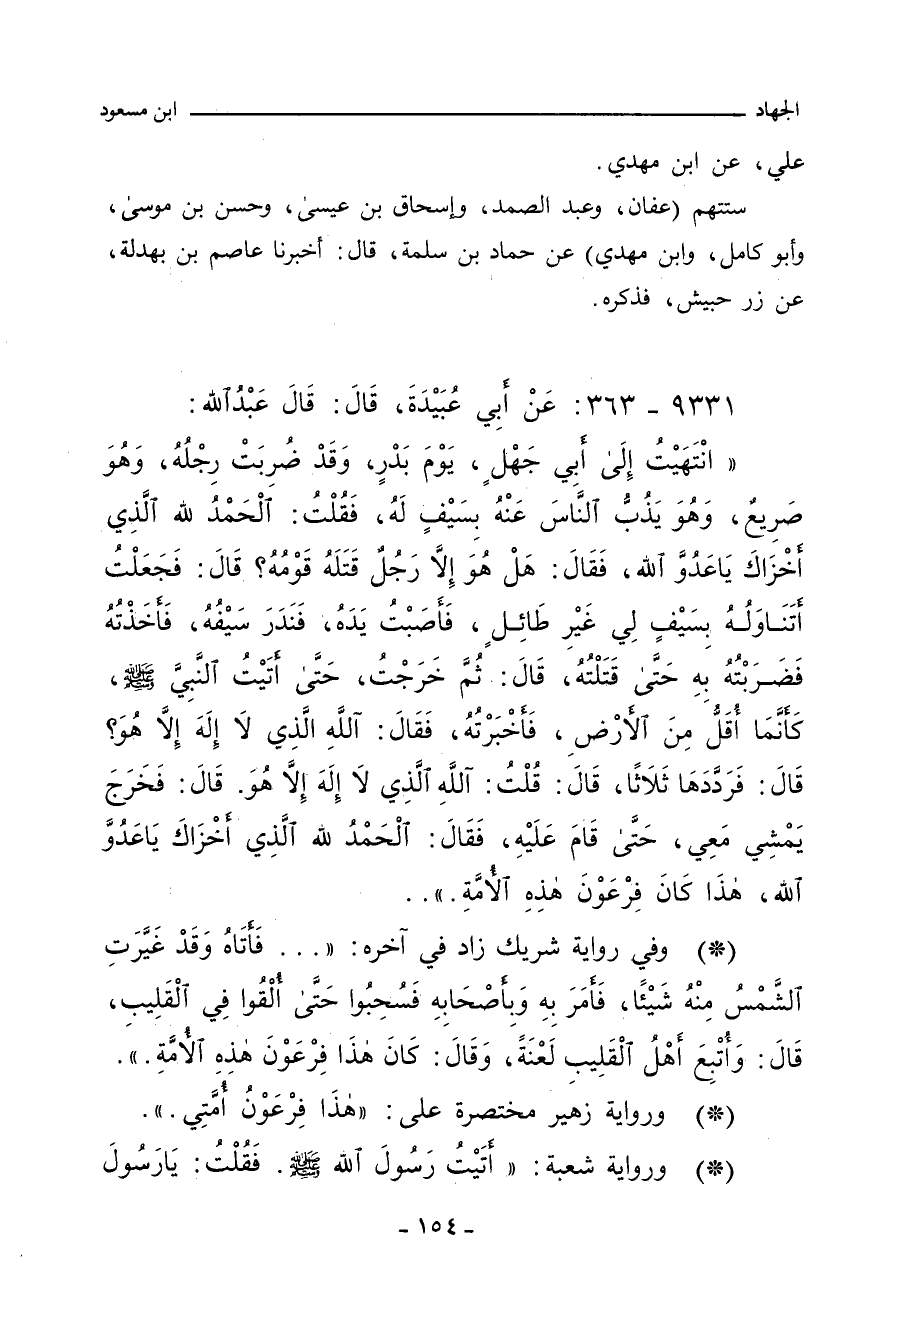 الجهاد ابن مسعود
علي، عن ابن مهدي.
ستتهم (عفان، وعبد الصمد، وإسحاق بن عيسىٰ، وحسن بن موسىٰ،
وأبو كامل، وابن مهدي) عن حماد بن سلمة، قال: أخبرنا عاصم بن بهدلة،
عن زر حبيش، فذكره.
٩٣٣١ - ٣٦٣: عَنْ أَبِي عُبَيْدَةَ، قَالَ: قَالَ عَبْدُاللهِ:
« انْتَهَيْتُ إِلَىٰ أَبِي جَهْلٍ، يَوْمَ بَدْرٍ، وَقَدْ ضُرِبَتْ رِجْلُهُ، وَهُوَ
صَرِيعٌ، وَهُوَ يَذُبُّ ٱلنَّاسَ عَنْهُ بِسَيْفٍ لَهُ، فَقُلْتُ: ٱلْحَمْدُ للهِ ٱلَّذِي
أَخْزَاكَ يَاعَدُوَّ ٱللهِ، فَقَالَ: هَلْ هُوَ إِلَّا رَجُلٌ قَتَلَهُ قَوْمُهُ؟ قَالَ: فَجَعَلْتُ
أَتَنَاوَلُهُ بِسَيْفٍ لِي غَيْرِ طَائِلٍ، فَأَصَبْتُ يَدَهُ، فَنَدَرَ سَيْفُهُ، فَأَخَذْتُهُ
فَضَرَبْتُهُ بِهِ حَتَّىٰ قَتَلْتُهُ، قَالَ: ثُمَّ خَرَجْتُ، حَتَّىٰ أَتَيْتُ ٱلنَّبِيَّ ﷺ،
كَأَنَّمَا أُقَلُّ مِنَ ٱلْأَرْضِ، فَأَخْبَرْتُهُ، فَقَالَ: آللهِ الَّذِي لَا إِلَهَ إِلَّا هُوَ؟
قَالَ: فَرَدَّدَهَا ثَلَاثًا، قَالَ: قُلْتُ: آللهِ ٱلَّذِي لَا إِلَهَ إِلَّا هُوَ. قَالَ: فَخَرَجَ
يَمْشِي مَعِي، حَتَّىٰ قَامَ عَلَيْهِ، فَقَالَ: ٱلْحَمْدُ للهِ ٱلَّذِي أَخْزَاكَ يَاعَدُوَّ
ٱللهِ، هٰذَا كَانَ فِرْعَوْنَ هٰذِهِ ٱلْأُمَّةِ.»..
(*) وفي رواية شريك زاد في آخره: «... فَأَتَاهُ وَقَدْ غَيَّرَتِ
ٱلشَّمْسُ مِنْهُ شَيْئًا، فَأَمَرَ بِهِ وَبِأَصْحَابِهِ فَسُحِبُوا حَتَّىٰ أُلْقُوا فِي ٱلْقَلِيبِ،
قَالَ: وَأُتْبِعَ أَهْلُ ٱلْقَلِيبِ لَعْنَةً، وَقَالَ: كَانَ هٰذَا فِرْعَوْنَ هٰذِهِ ٱلْأُمَّةِ.».
(*) ورواية زهير مختصرة على: «هٰذَا فِرْعَوْنُ أُمَّتِي.».
(*) ورواية شعبة: « أَتَيْتُ رَسُولَ ٱللهِ ﷺ. فَقُلْتُ: يَارَسُولَ
- ١٥٤ -